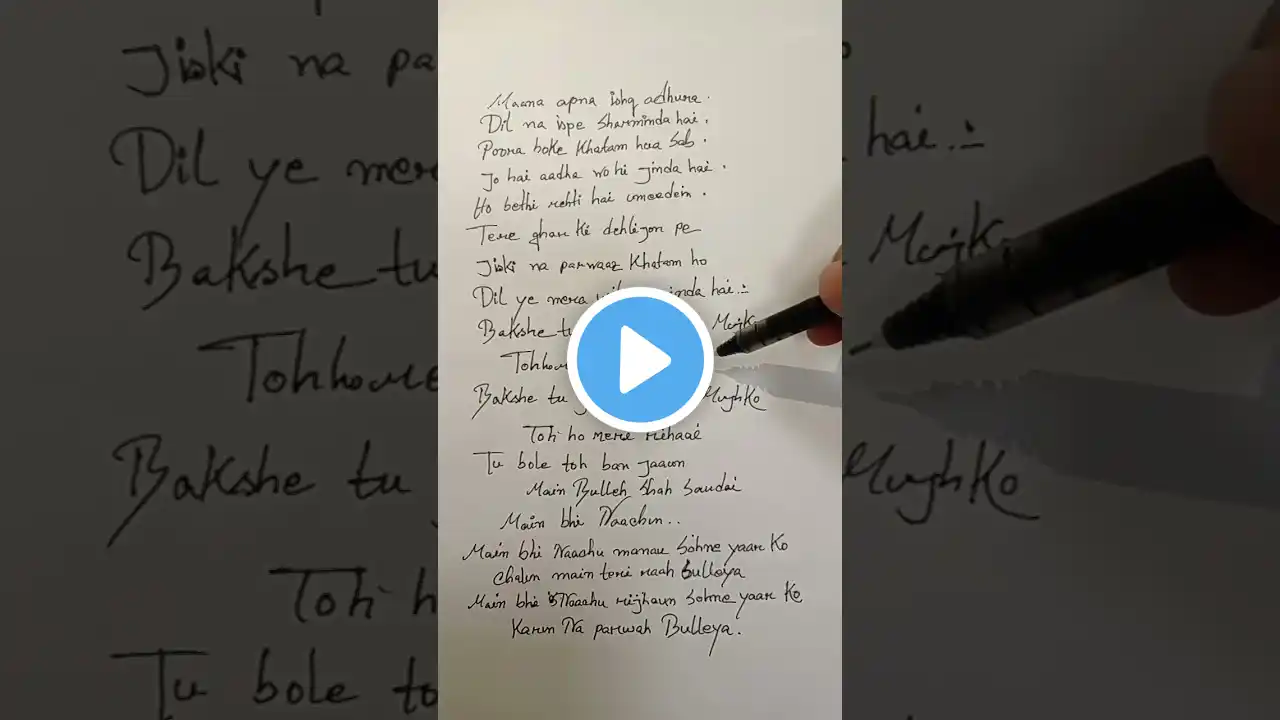 Maana apna ishq adhura.
Dil na ispe sharminda hai.
Poora hoke Khatam hua Sab.
Jo hai aadha wo hi jinda hai.
Ho bethi rehti hai umeedein.
Tere ghar Ki dehlijon pe
Jiski na parwaaz Khatam ho
Dil ye mera inda hai.:
Bakshe tu
Bakshe tu MujhKo
Toh ho mere rihaai
Tu bole toh ban jaaun
Main Bulleh Shah Saudai
Main bhi Naachun..
Main bhi Naachu manau Sohne yaar Ko
Chalun main teri raah Bulleya
Main bhi Naachu rijhaun Sohne yaar Ko
Karun Na parwah Bulleya.